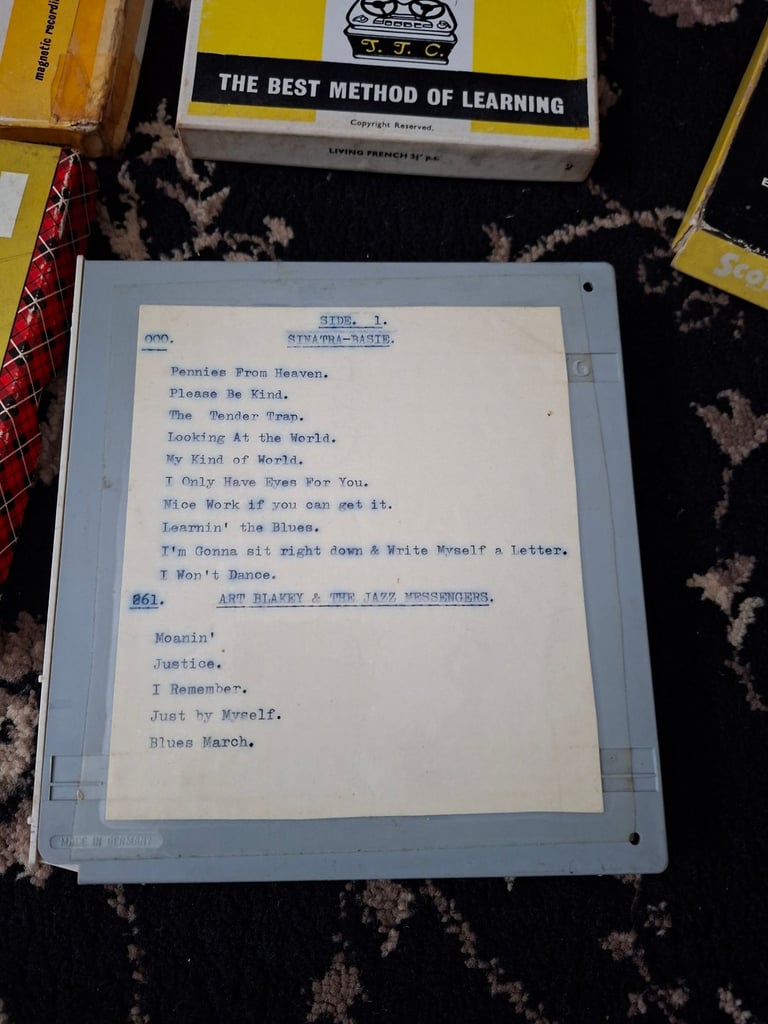 magnetic recordi
T. T. C.
THE BEST METHOD OF LEARNING
Copyright Reserved.
LIVING FRENCH 3¾" p.s. 2
Sco
SIDE. 1.
000. SINATRA-BASIE.
Pennies From Heaven.
Please Be Kind.
The Tender Trap.
Looking At the World.
My Kind of World.
I Only Have Eyes For You.
Nice Work if you can get it.
Learnin' the Blues.
I'm Gonna sit right down & Write Myself a Letter.
I Won't Dance.
261. ART BLAKEY & THE JAZZ MESSENGERS.
Moanin'
Justice.
I Remember.
Just by Myself.
Blues March.
MADE IN GERMANY